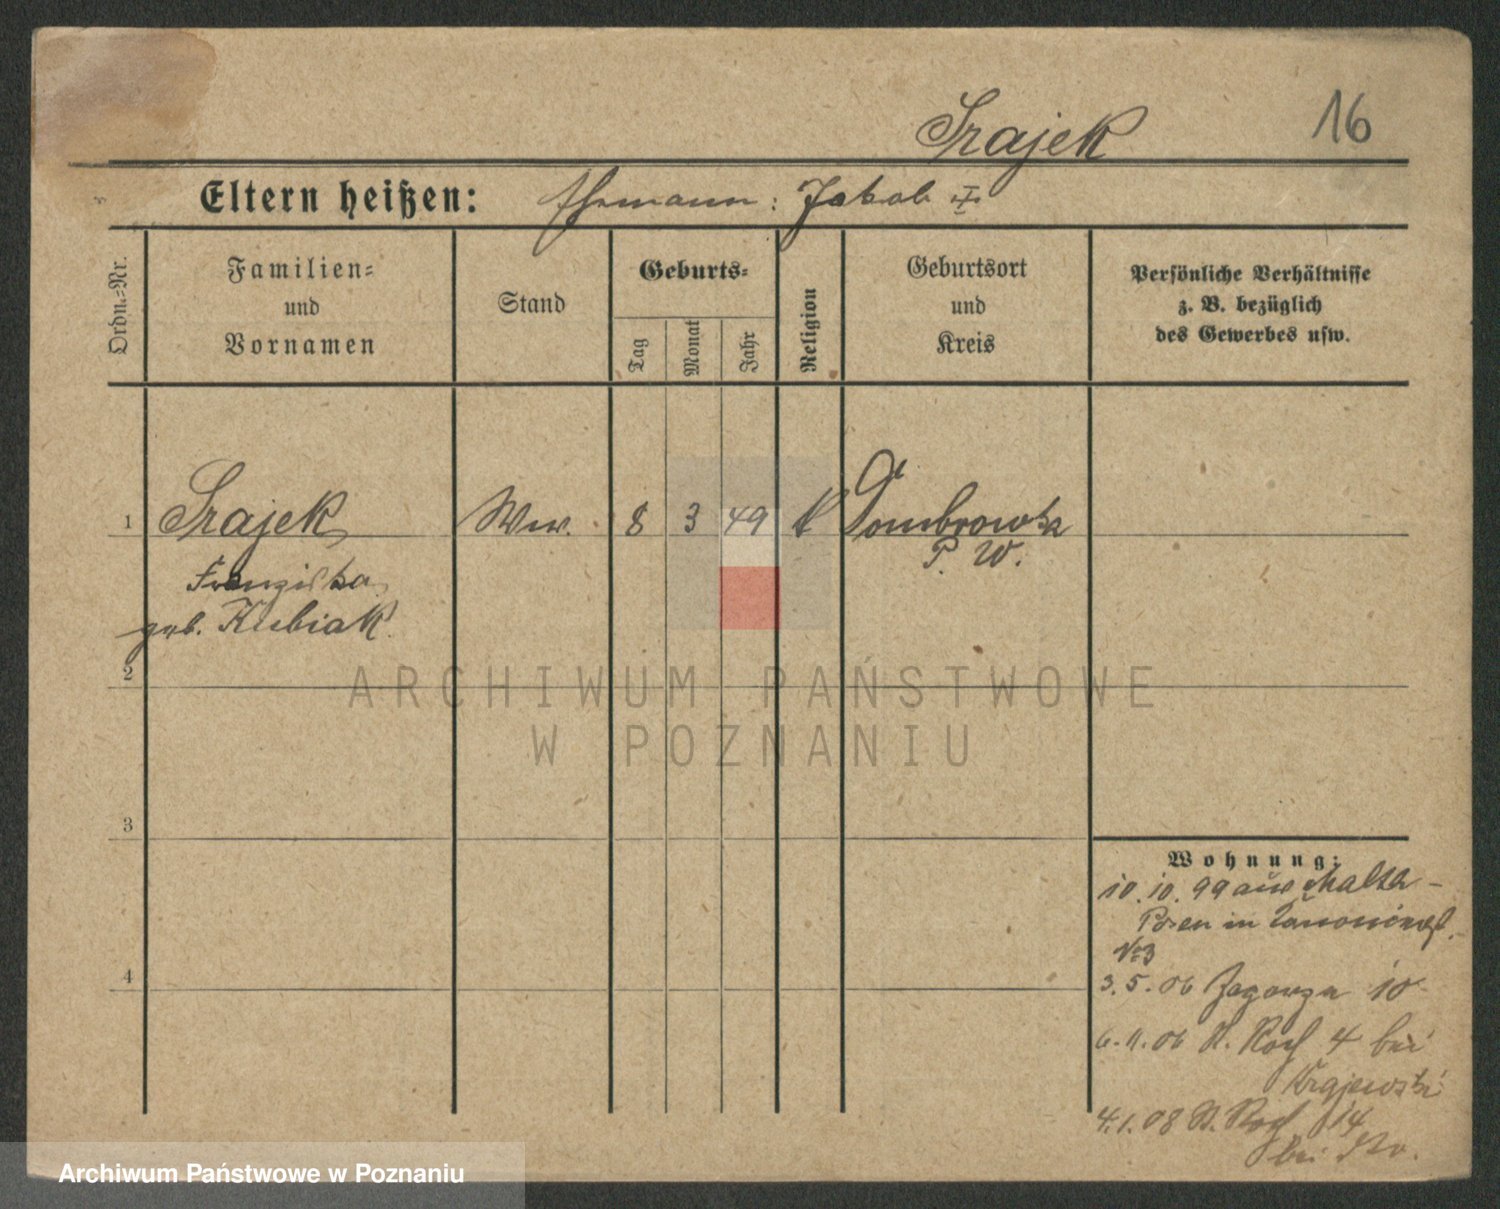 Srajek 16
Eltern heißen: Ehemann: Jakob
Ordn.-Nr.
Familien-
und
Vornamen
Stand
Geburts-
Tag
Monat
Jahr
Religion
Geburtsort
und
Kreis
Persönliche Verhältnisse
z. B. bezüglich
des Gewerbes usw.
1 Srajek Ww. 8 3 49 k Dombrowka
P. W.
Franziska
geb. Kubiak
2
ARCHIWUM PAŃSTWOWE
W POZNANIU
3
4
Wohnung:
10.10.99 aus Malta -
Posen in
№3
3.5.06 Zagorze 10
6.11.06 St. Roch 4 bei
Krajewski
4.1.08 St. Roch 14
bei
Archiwum Państwowe w Poznaniu